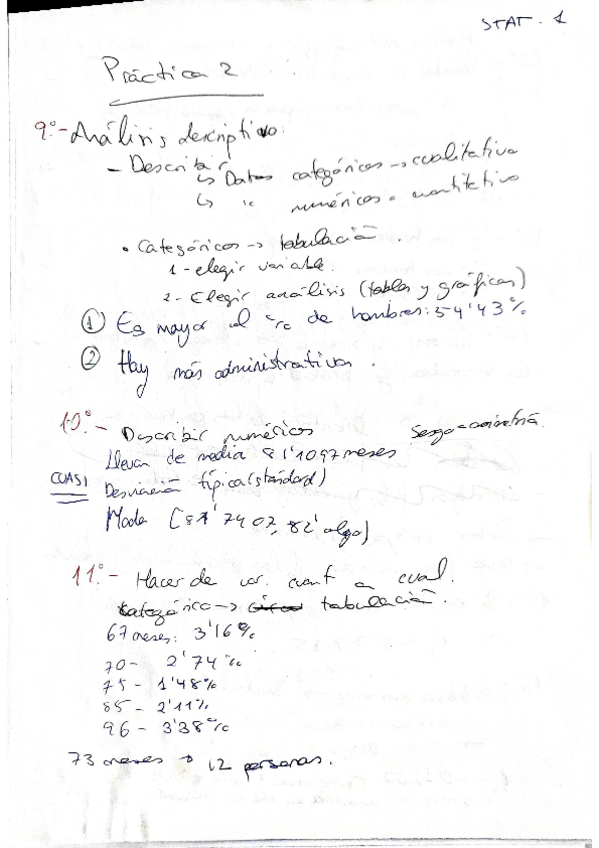 STAT. 1
Práctica 2
9º.- Análisis descriptivo.
- Describir
↳ Datos categóricos → cualitativo
↳ " numéricos = cuantitativo
• Categóricos → tabulación.
1 - elegir variable.
2 - Elegir análisis (tablas y gráficas)
① Es mayor el % de hombres: 54'43%
② Hay más administrativos.
10º.- Describir numéricos
Sesgo = asimetría.
Llevan de media 81'1097 meses
CUASI Desviación típica (standard)
Moda [81'7407, 82'algo)
11º.- Hacer de var. cuant a cual.
Categórico → tabulación.
67 meses: 3'16%
70 - 2'74%
75 - 1'48%
85 - 2'11%
96 - 3'38%
73 meses → 12 personas.